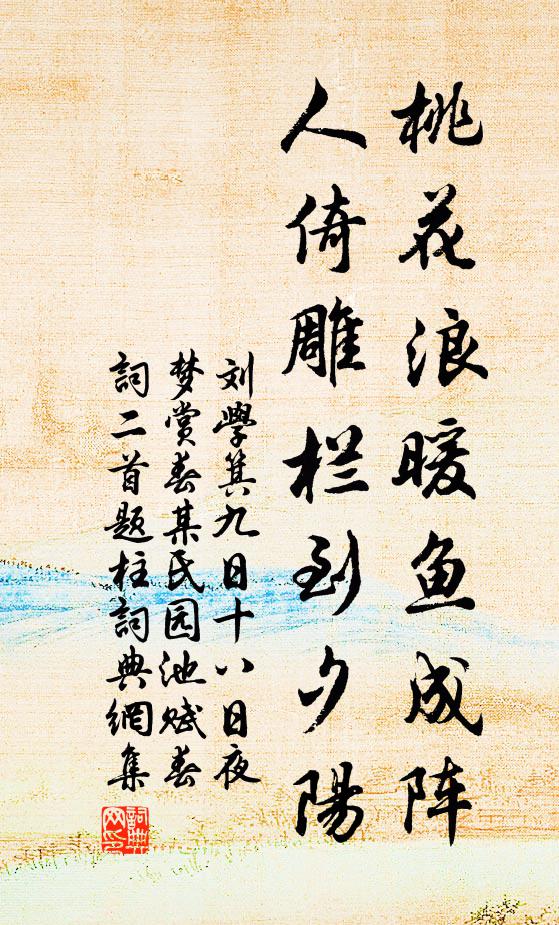 桃花浪暖鱼成阵
人倚雕栏到夕陽
刘學箕九日十八日夜
梦赏春某氏园池赋春
詞二首题柱詞典網集
詞典
网印